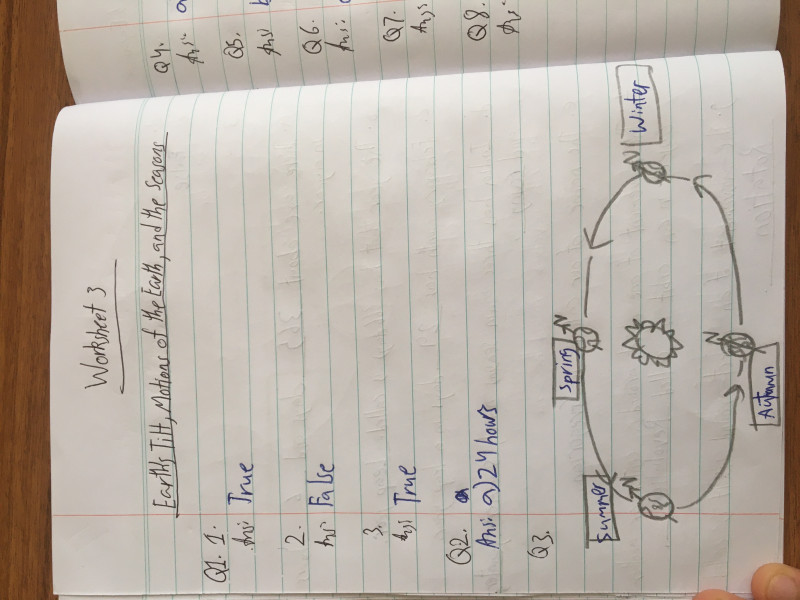 Worksheet 3
Earth's Tilt, Motions of the Earth, and the Seasons
Q1. 1.
Ans: True
2.
Ans: False
3.
Ans: True
Q2.
Ans: a) 24 hours
Q3.
Spring
N
Summer
N
Winter
N
Autumn
N
Q4.
Ans:
Q5.
Ans:
Q6.
Ans:
Q7.
Ans:
Q8.
Ans: